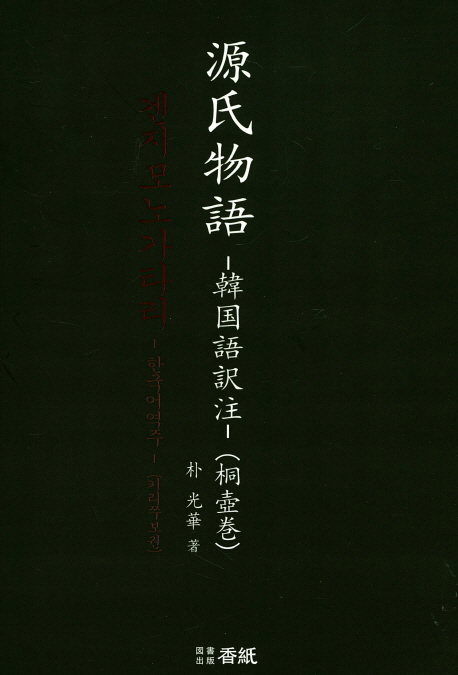 源氏物語 -韓国語訳注- (桐壺巻)
朴 光華 著
겐지모노가타리 - 한국어역주 -
図書出版 香紙